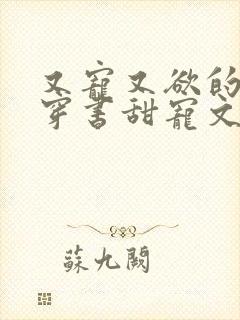 又寵又欲的
穿書甜寵文
蘇九闕